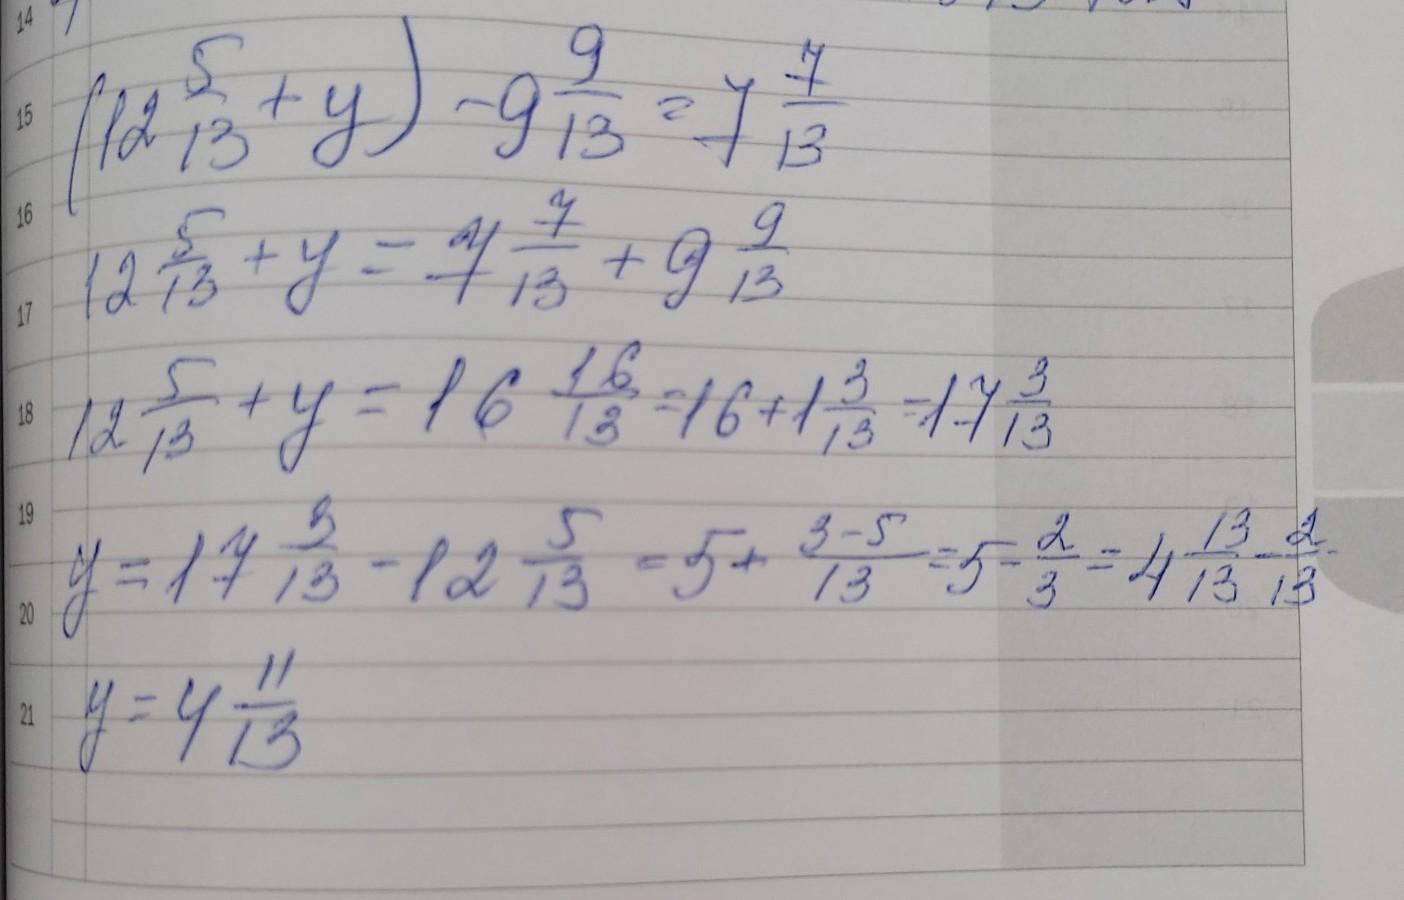 14
15 (12 5/13 + y) - 9 9/13 = 7 7/13
16
12 5/13 + y = 7 7/13 + 9 9/13
17
18 12 5/13 + y = 16 16/13 = 16 + 1 3/13 = 17 3/13
19
y = 17 3/13 - 12 5/13 = 5 + 3-5/13 = 5 - 2/3 = 4 13/13 - 2/13
20
21 y = 4 11/13